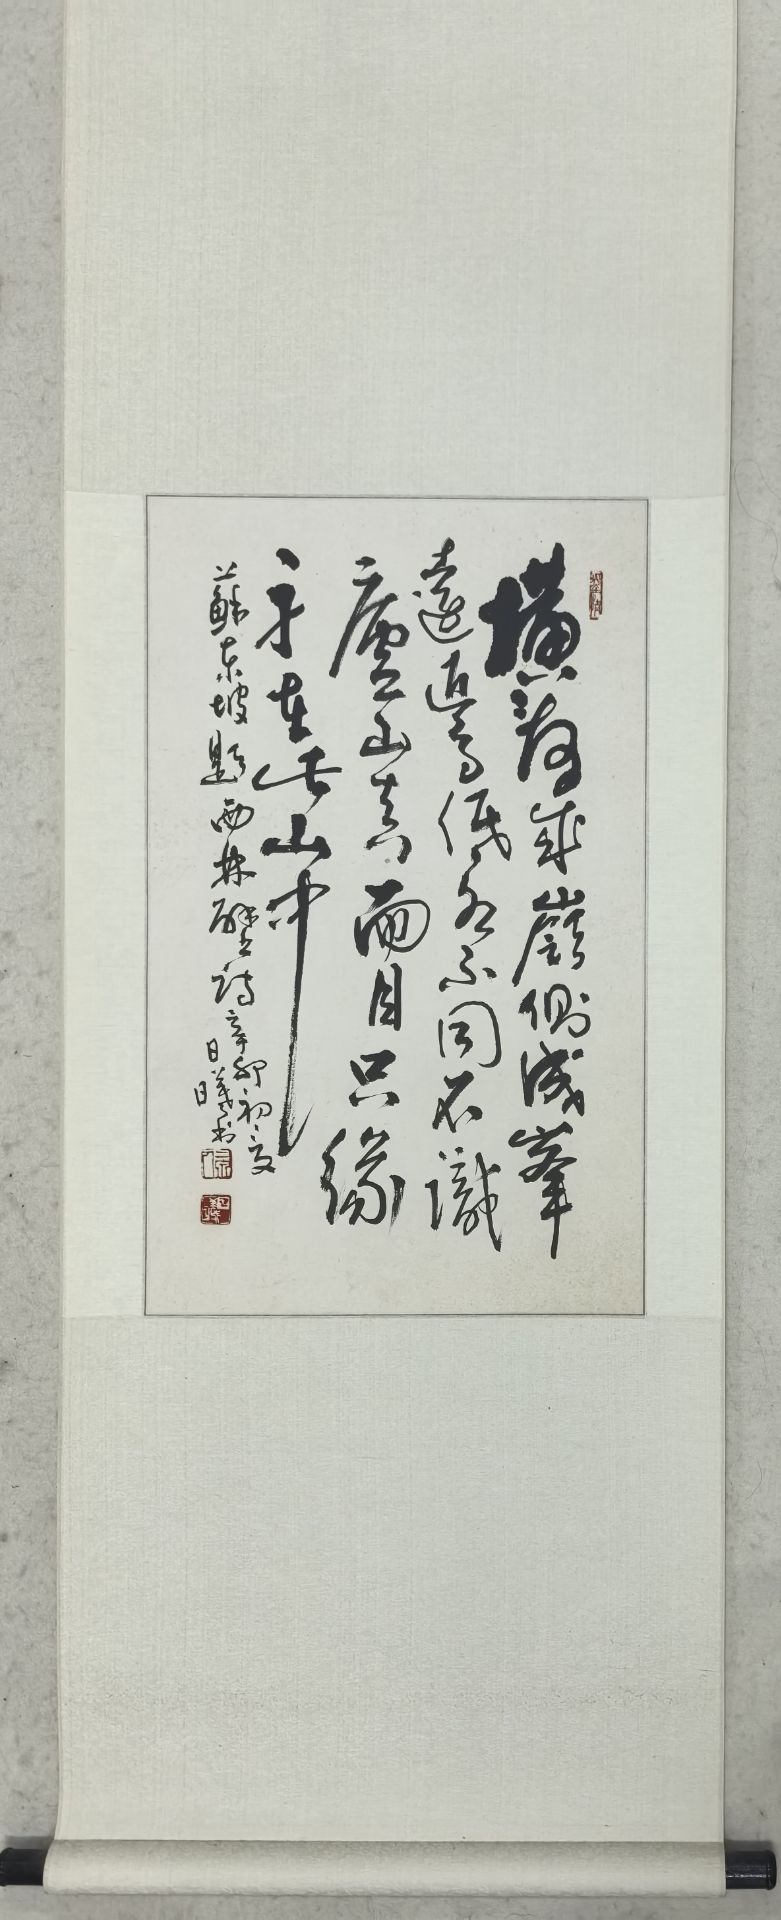 橫看成嶺側成峯
遠近高低各不同不識
廬山真面目只緣
身在此山中
蘇东坡題西林壁詩辛卯初夏
日曦书